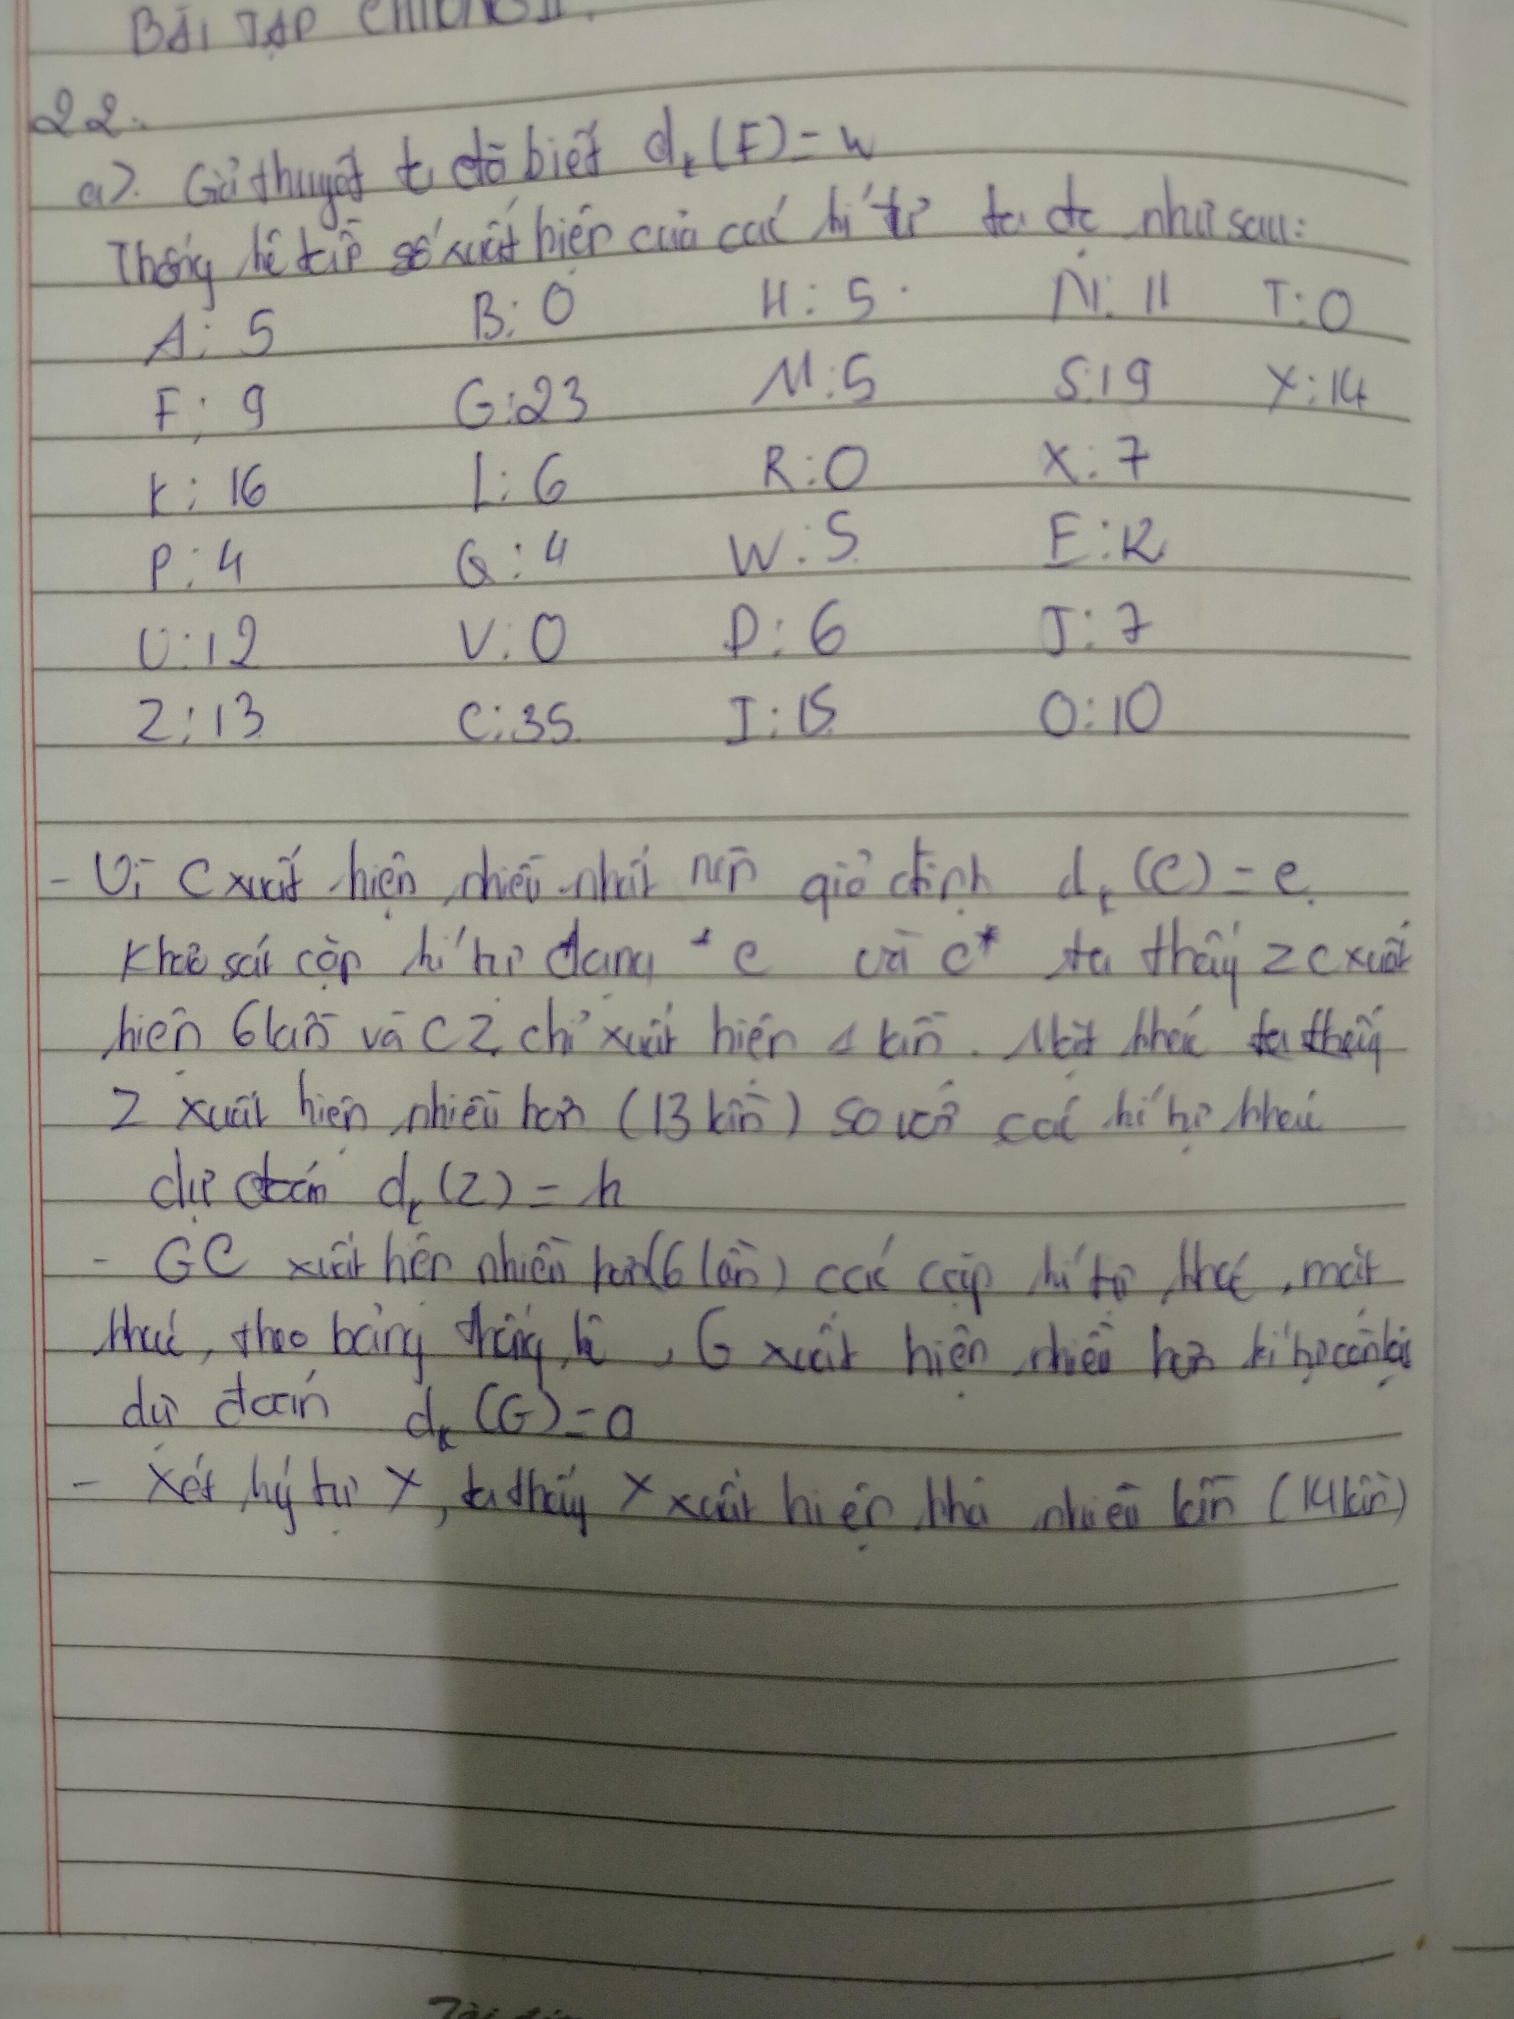 BÀI TẬP CHƯƠNG II.
22.
a). Giả thuyết ta đã biết dₖ(F) = w
Thống kê tần số xuất hiện của các kí tự ta đc như sau:
A: 5 B: 0 H: 5 N: 11 T: 0
F: 9 G: 23 M: 5 S: 19 Y: 14
K: 16 L: 6 R: 0 X: 7
P: 4 Q: 4 W: 5 E: 12
U: 12 V: 0 D: 6 J: 7
Z: 13 C: 35 I: 15 O: 10
- Vì C xuất hiện nhiều nhất nên giả định dₖ(C) = e.
Khảo sát cặp kí tự dạng *c và c* ta thấy ZC xuất
hiện 6 lần và CZ chỉ xuất hiện 1 lần. Mặt khác ta thấy
Z xuất hiện nhiều hơn (13 lần) so với các kí tự khác
dự đoán dₖ(Z) = h
- GC xuất hiện nhiều hơn (6 lần) các cặp kí tự khác, mặt
khác, theo bảng thống kê, G xuất hiện nhiều hơn kí tự còn lại
dự đoán dₖ(G) = a
- Xét ký tự Y, ta thấy Y xuất hiện khá nhiều lần (14 lần)